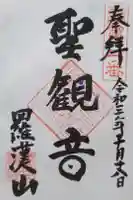 奉拝
令和三年十月十六日
聖観音
羅漢山